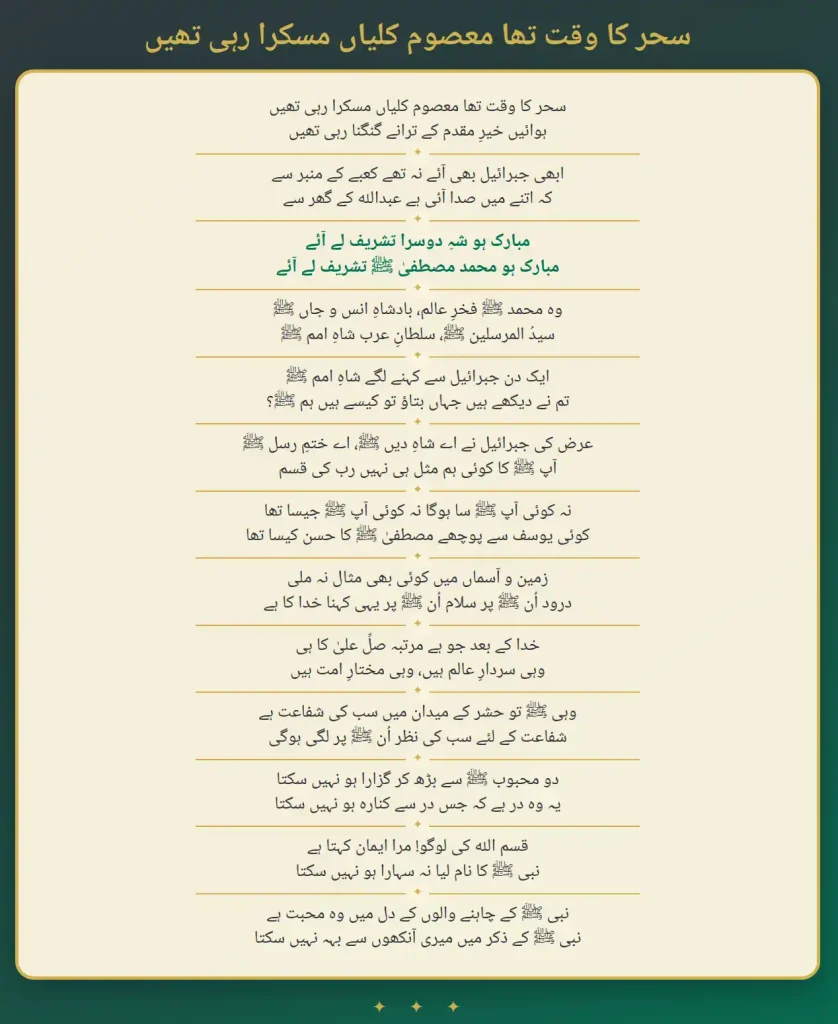 سحر کا وقت تھا معصوم کلیاں مسکرا رہی تھیں
سحر کا وقت تھا معصوم کلیاں مسکرا رہی تھیں
ہوائیں خیرِ مقدم کے ترانے گنگنا رہی تھیں
ابھی جبرائیل بھی آئے نہ تھے کعبے کے منبر سے
کہ اتنے میں صدا آئی ہے عبداللہ کے گھر سے
مبارک ہو شہِ دوسرا تشریف لے آئے
مبارک ہو محمد مصطفیٰ ﷺ تشریف لے آئے
وہ محمد ﷺ فخرِ عالم، بادشاہِ انس و جاں ﷺ
سیدُ المرسلین ﷺ، سلطانِ عرب شاہِ امم ﷺ
ایک دن جبرائیل سے کہنے لگے شاہِ امم ﷺ
تم نے دیکھے ہیں جہاں بتاؤ تو کیسے ہیں ہم ﷺ؟
عرض کی جبرائیل نے اے شاہِ دیں ﷺ، اے ختمِ رسل ﷺ
آپ ﷺ کا کوئی ہم مثل ہی نہیں رب کی قسم
نہ کوئی آپ ﷺ سا ہوگا نہ کوئی آپ ﷺ جیسا تھا
کوئی یوسف سے پوچھے مصطفیٰ ﷺ کا حسن کیسا تھا
زمین و آسماں میں کوئی بھی مثال نہ ملی
درود اُن ﷺ پر سلام اُن ﷺ پر یہی کہنا خدا کا ہے
خدا کے بعد جو ہے مرتبہ صلِّ علیٰ کا ہی
وہی سردارِ عالم ہیں، وہی مختارِ امت ہیں
وہی ﷺ تو حشر کے میدان میں سب کی شفاعت ہے
شفاعت کے لئے سب کی نظر اُن ﷺ پر لگی ہوگی
دو محبوب ﷺ سے بڑھ کر گزارا ہو نہیں سکتا
یہ وہ در ہے کہ جس در سے کنارہ ہو نہیں سکتا
قسم اللہ کی لوگو! مرا ایمان کہتا ہے
نبی ﷺ کا نام لیا نہ سہارا ہو نہیں سکتا
نبی ﷺ کے چاہنے والوں کے دل میں وہ محبت ہے
نبی ﷺ کے ذکر میں میری آنکھوں سے بہہ نہیں سکتا